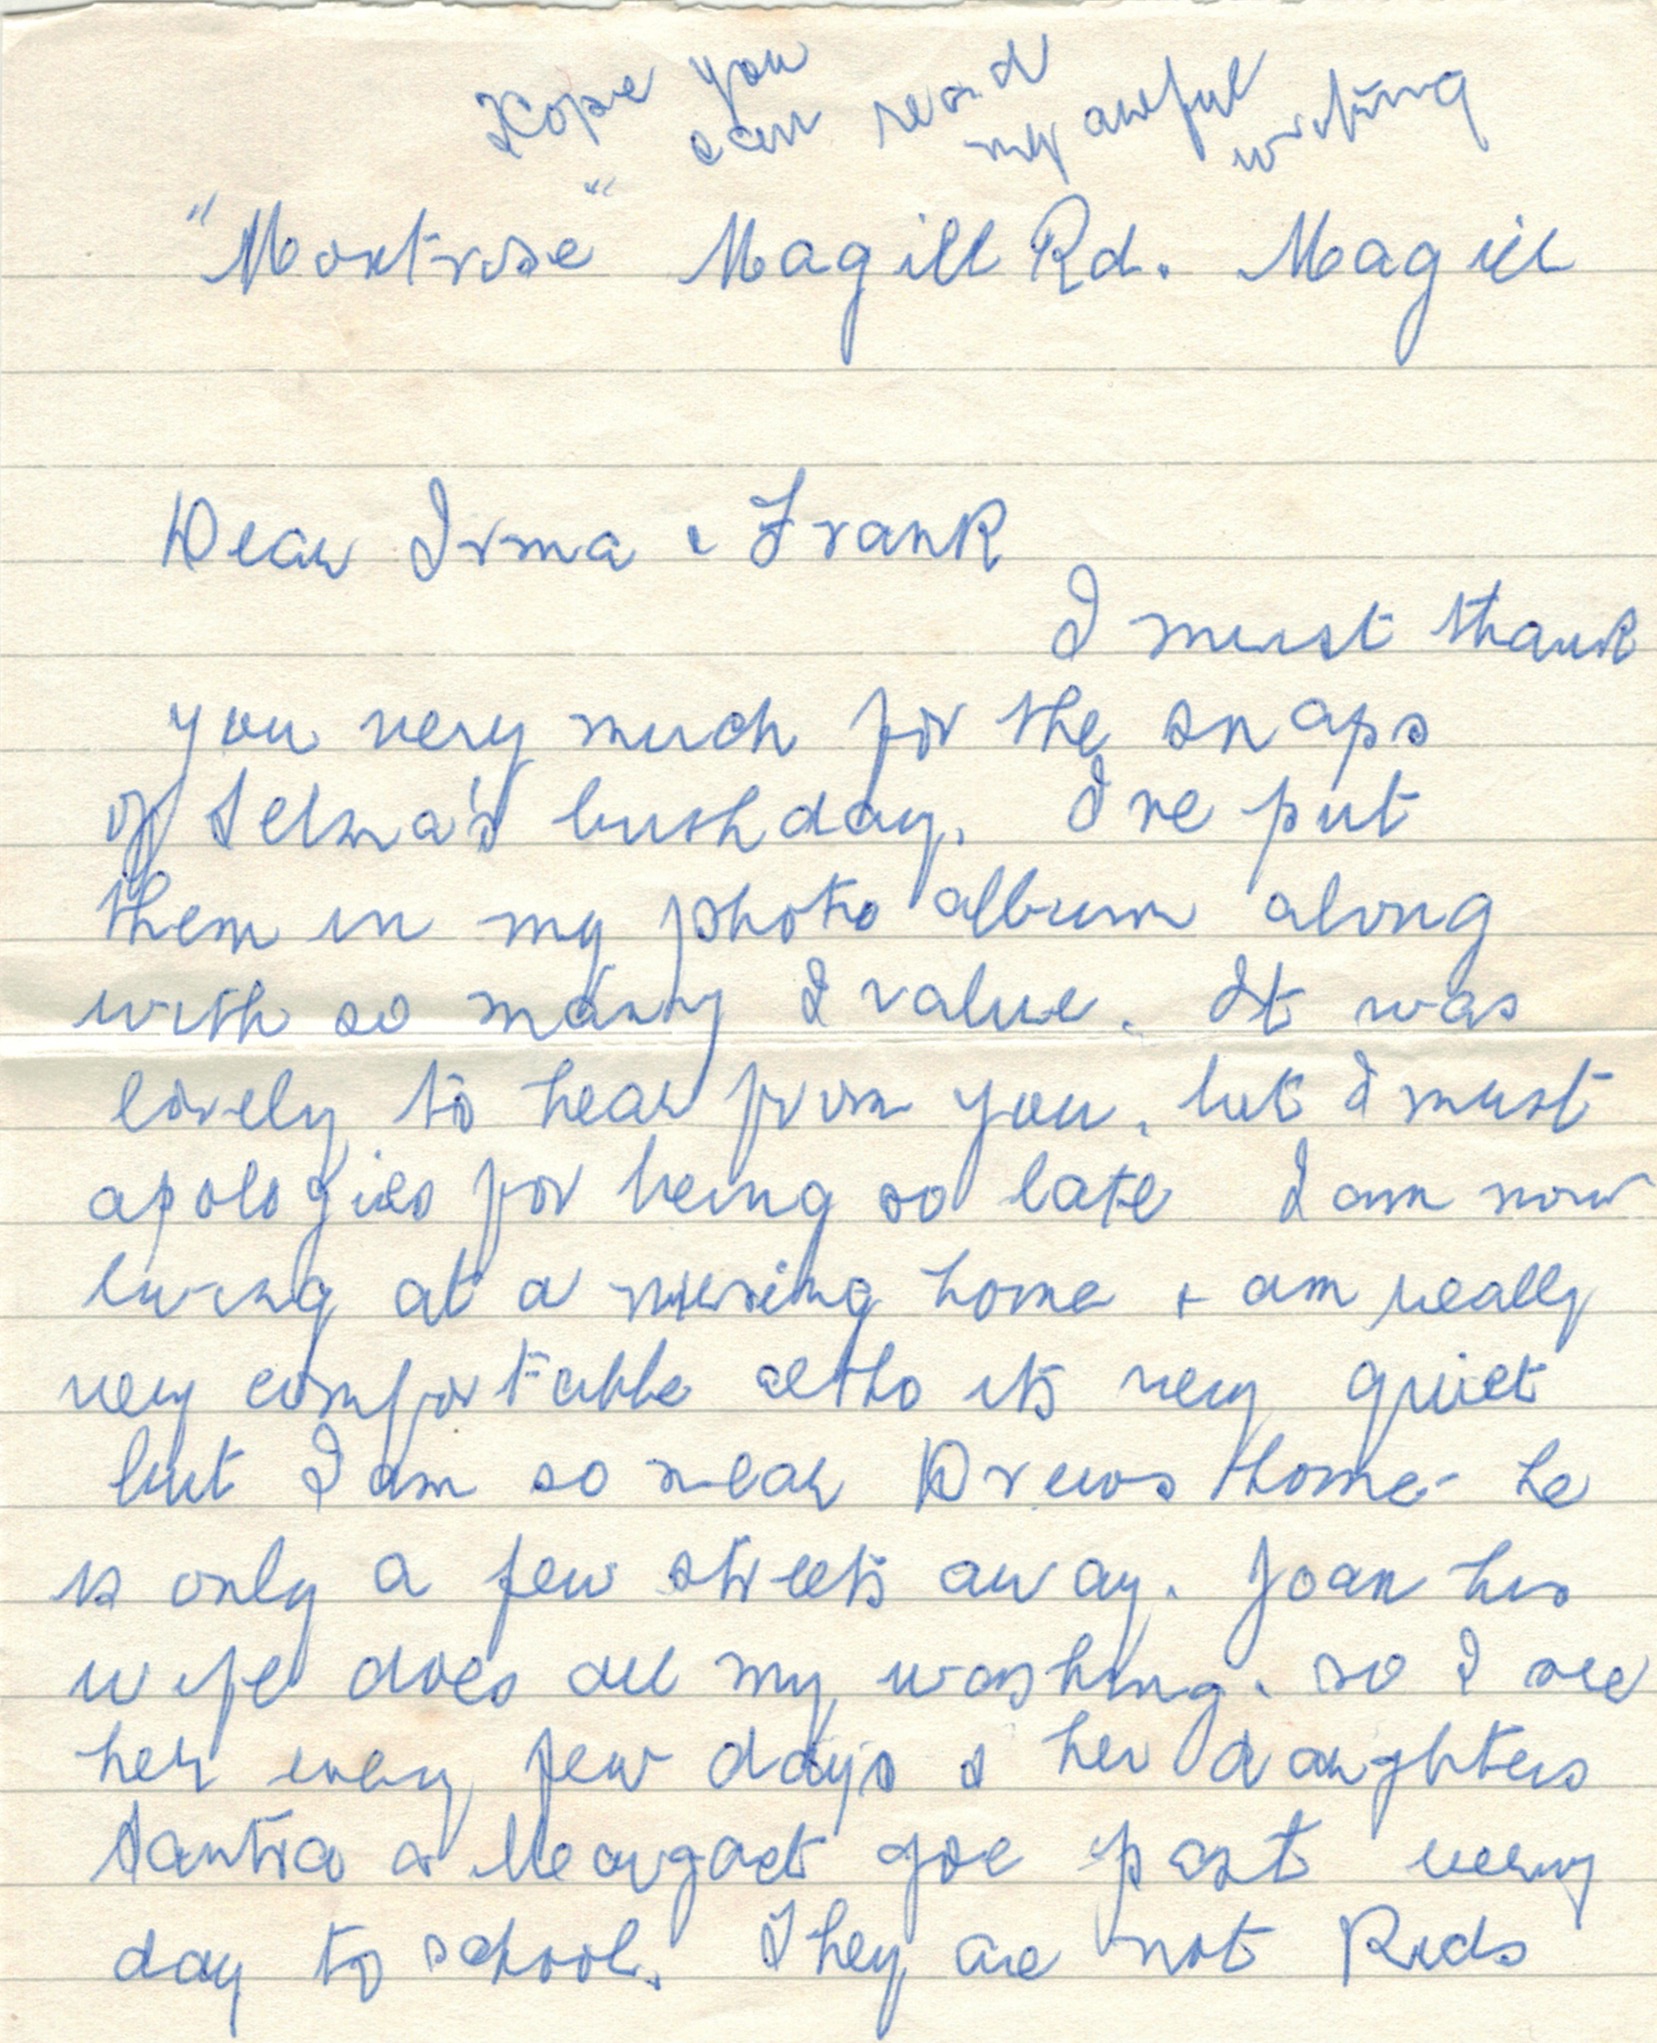 Hope you can read my awful writing
"Montrose" Magill Rd. Magill
Dear Irma & Frank
I must thank
you very much for the snaps
of Selma's birthday. I've put
them in my photo album along
with so many I value. It was
lovely to hear from you, but I must
apologies for being so late I am now
living at a nursing home & am really
very comfortable altho its very quiet
but I am so near Drews home - he
is only a few streets away. Joan his
wife does all my washing. so I see
her every few days & her daughters
& Margaet goe past every
day to school. They are not Kids